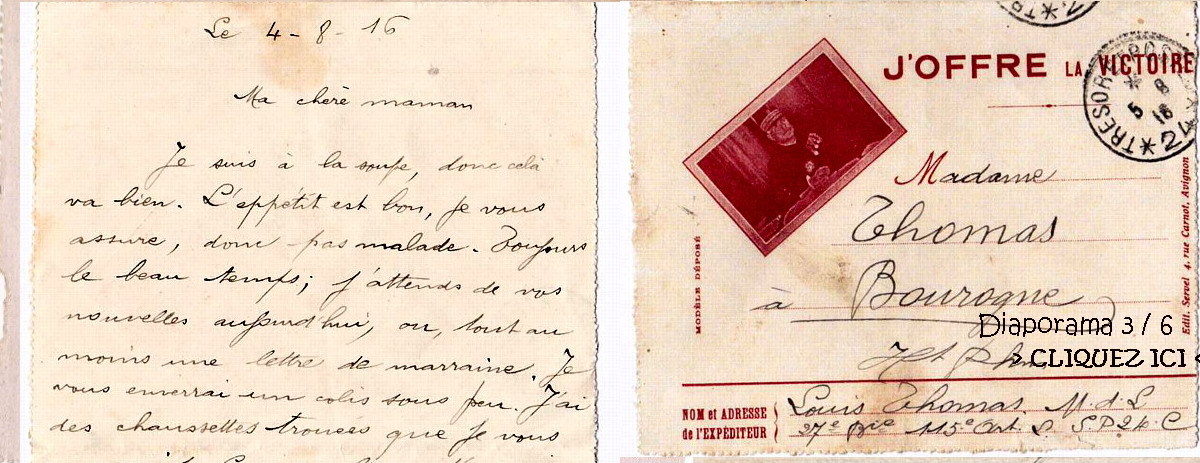 Le 4 - 8 - 16
Ma chère maman
Je suis à la soupe, donc celà
va bien. L'appétit est bon, je vous
assure, donc pas malade. Toujours
le beau temps; j'attends de vos
nouvelles aujourd'hui, ou, tout au
moins une lettre de marraine. Je
vous enverrai un colis sous peu. J'ai
des chaussettes trouées que je vous
J'OFFRE LA VICTOIRE
TRESOR POSTES
5 8 16
* 24 *
Madame
Thomas
à Bourogne
Ht Rhin
MODÈLE DÉPOSÉ
Edit. Servel 4, rue Carnot, Avignon
Diaporama 3 / 6
> CLIQUEZ ICI <
NOM et ADRESSE
de l'EXPÉDITEUR
Louis Thomas. M.d.L
27e Bie 115e Art. L. S.P. 24. C